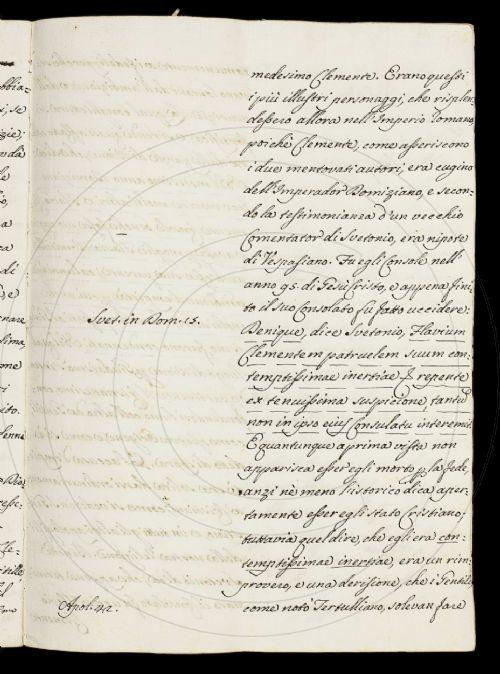 medesimo Clemente. Erano questi
i più illustri personaggi, che risplen-
dessero allora nell'Imperio Romano,
poichè Clemente, come asseriscono
i due mentovati autori, era cugino
dell'Imperador Domiziano, e secon-
do la testimonianza d'un vecchio
Comentator di Svetonio, era nipote
di Vespasiano. Fu egli Console nell'
anno 95. di Gesù Cristo, e appena fini-
to il suo Consolato fu fatto uccidere:
Svet. in Dom. 15.
Denique, dice Svetonio, Flavium
Clementem patruelem suum con-
temptissimae inertiae repente
ex tenuissima suspicione, tantū
non in ipso eius Consulatu interemit.
E quantunque a prima vista non
apparisca esser egli morto p. la fede,
anzi nè meno l'istorico dica aper-
tamente esser egli stato Cristiano;
tuttavia quel dire, che egli era con-
temptissimae inertiae, era un rim-
provero, e una derisione, che i Gentili,
come notò Tertulliano, solevan fare
Apol. 42.